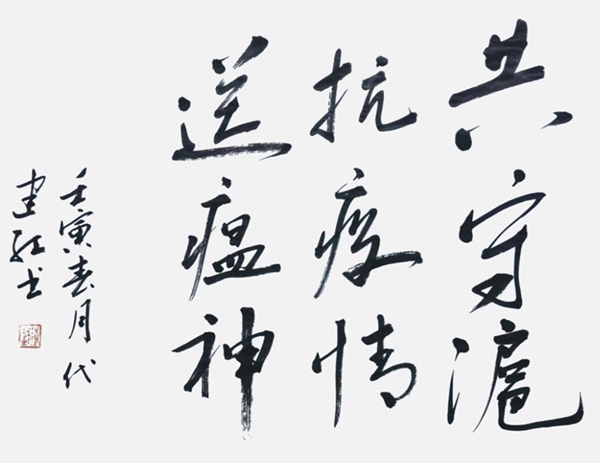 共守滬
抗疫情
送瘟神
壬寅春月 代
建红书